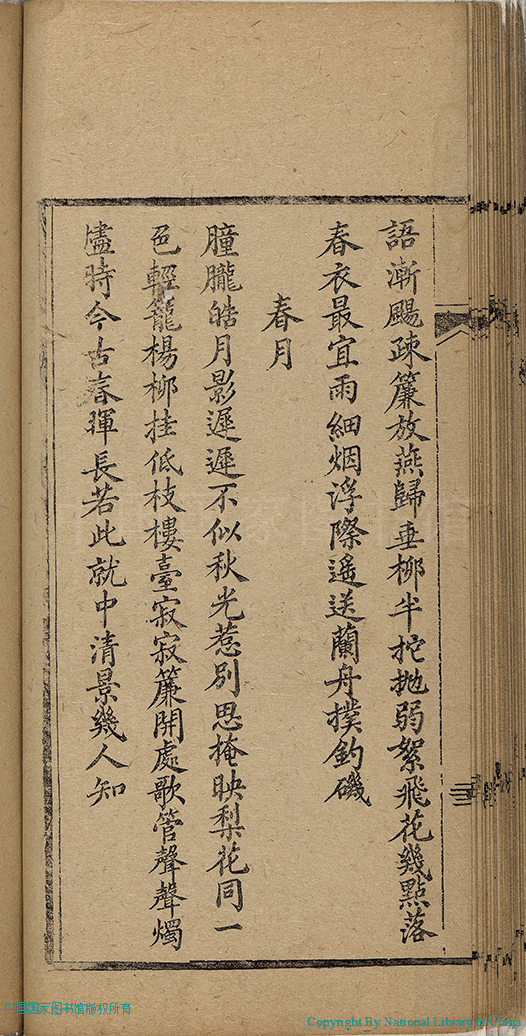 語漸颺疎簾放燕歸垂柳半拕抛弱絮飛花幾點落
春衣最宜雨細烟浮際遥送蘭舟撲釣磯
春月
朣朧皓月影遲遲不似秋光惹别思掩映梨花同一
色輕籠楊柳挂低枝樓臺寂寂簾開處歌管聲聲燭
燼時今古春暉長若此就中清景幾人知
中国国家图书馆版权所有
Copyright By National Library of China